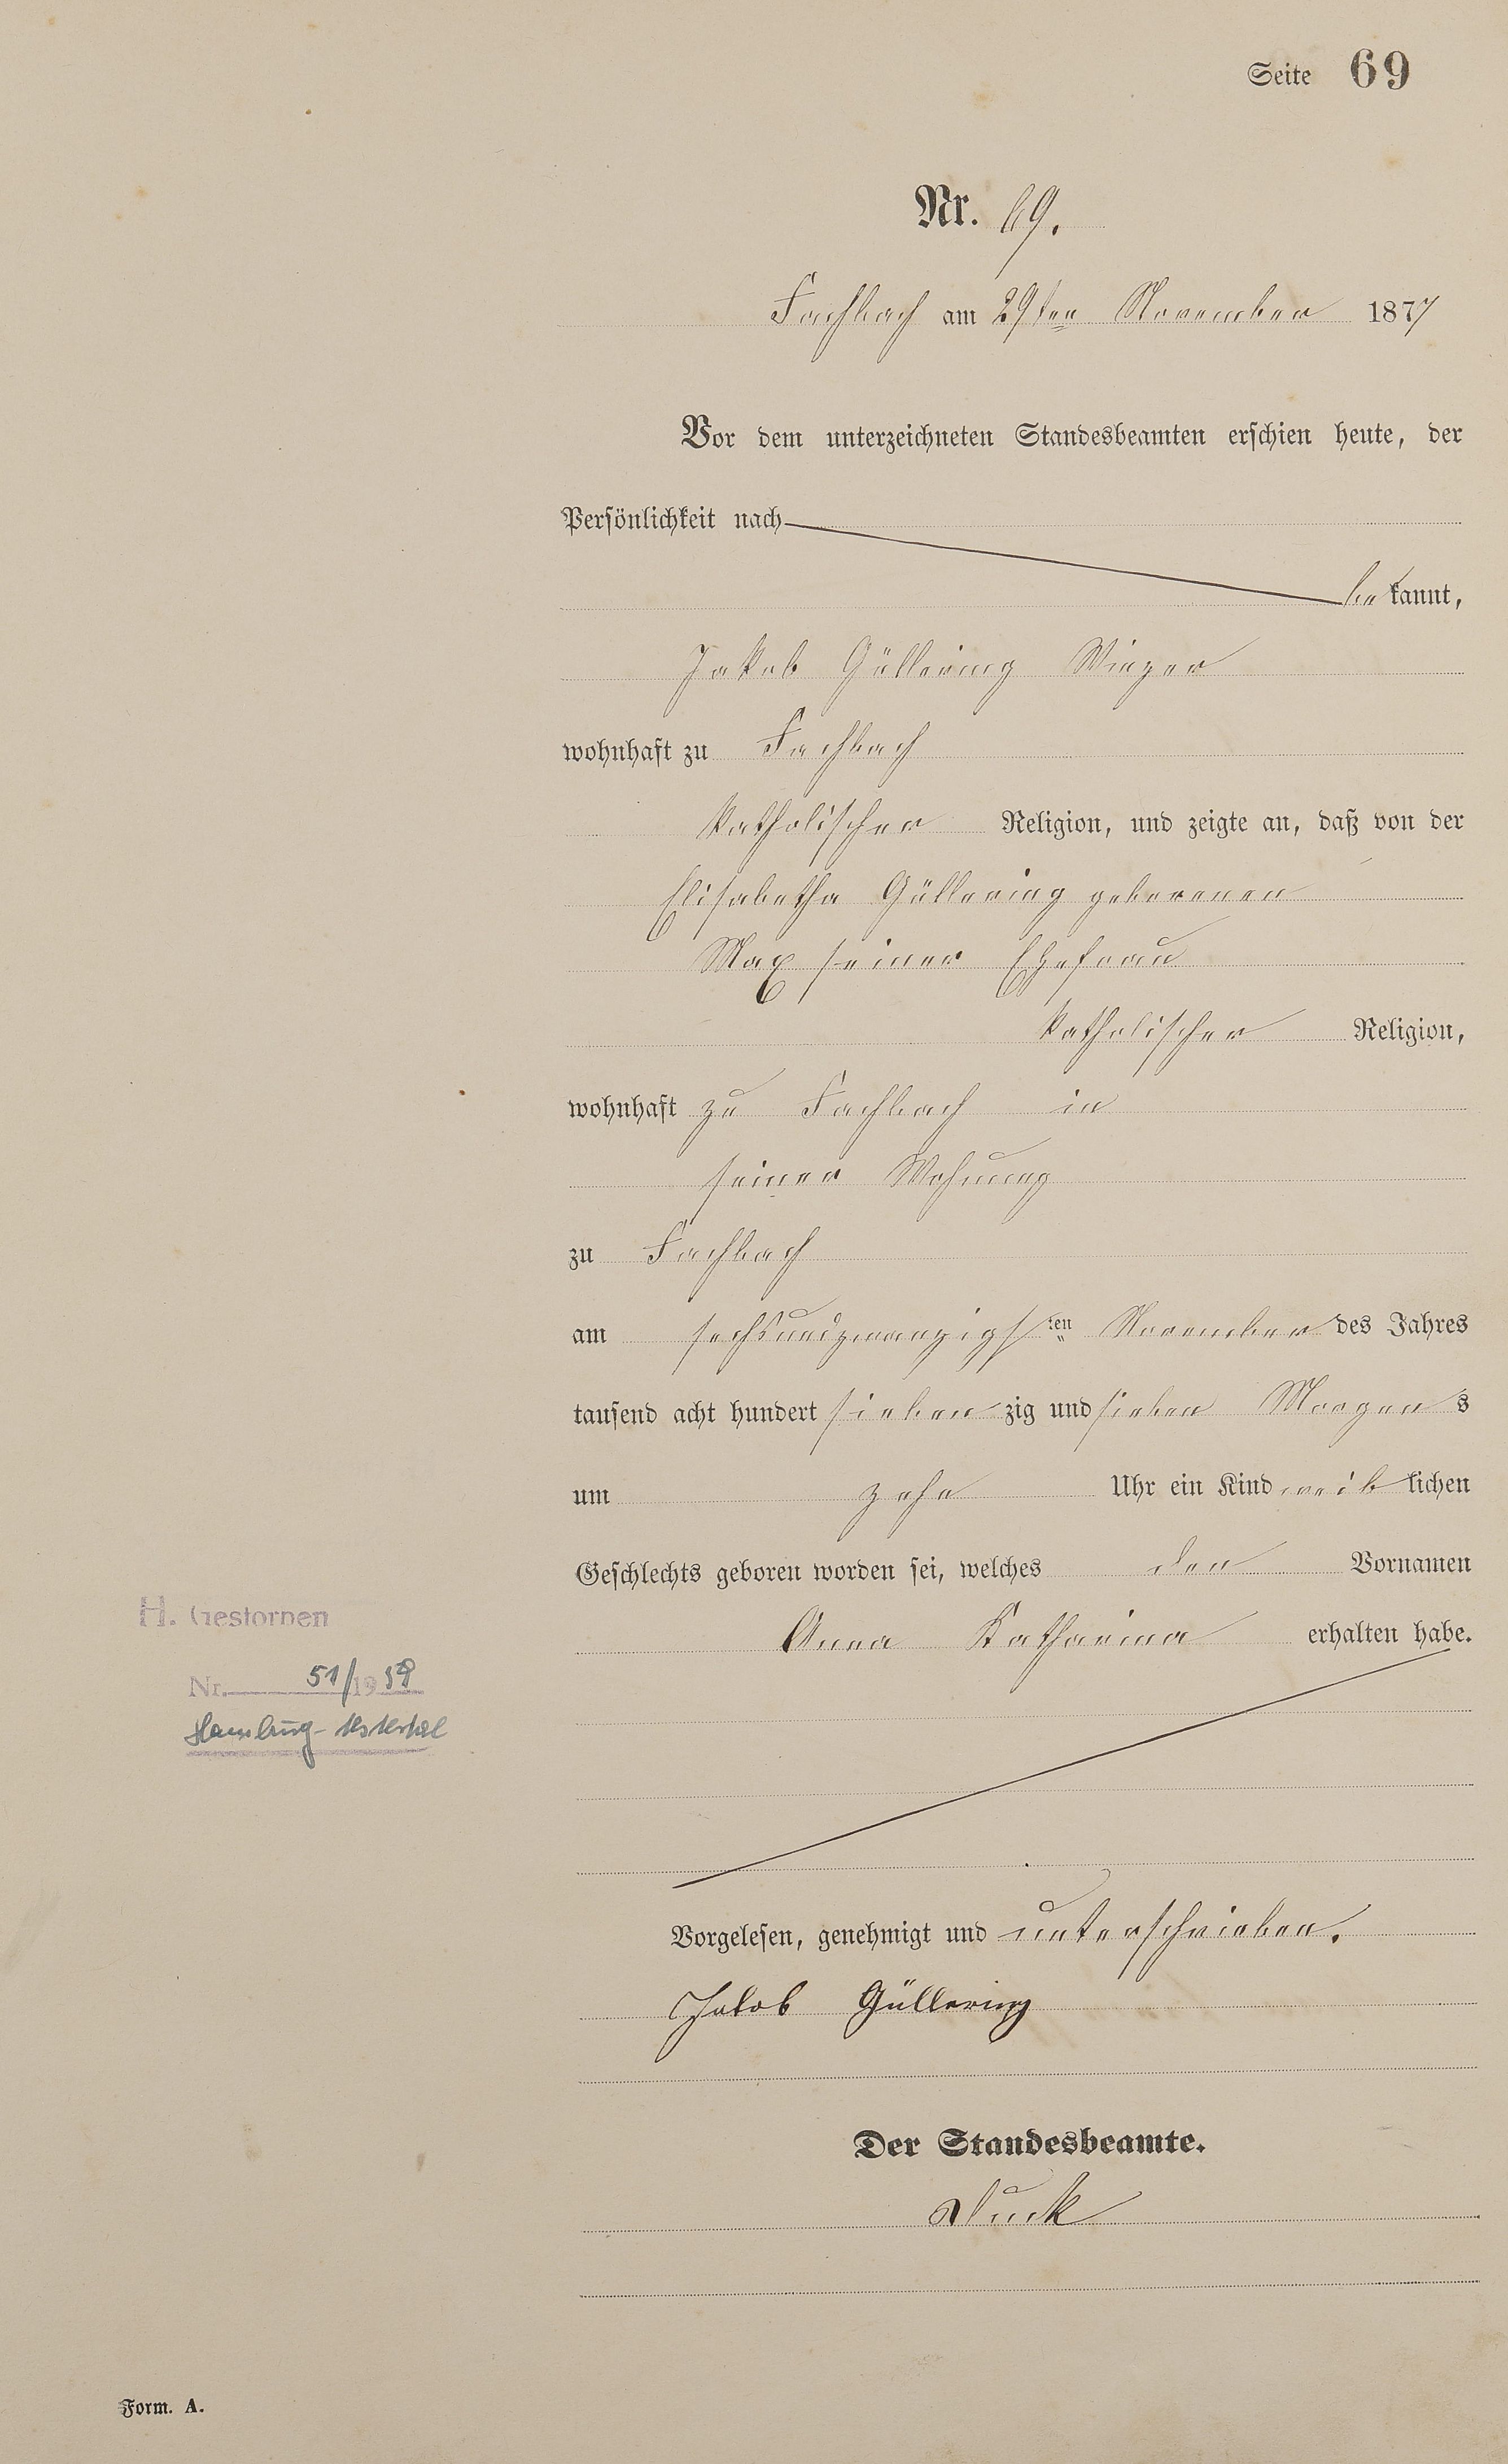 Seite 69
Nr. 69.
Fachbach am 29ten November 1877
Vor dem unterzeichneten Standesbeamten erschien heute, der
Persönlichkeit nach
bekannt,
Jakob Güllering Winzer
wohnhaft zu Fachbach
katholischer Religion, und zeigte an, daß von der
Elisabetha Güllering geborenen
Max seiner Ehefrau
katholischer Religion,
wohnhaft zu Fachbach in
seiner Wohnung
zu Fachbach
am sechsundzwanzigsten November des Jahres
tausend acht hundert siebenzig und sieben Morgens
um zehn Uhr ein Kind weiblichen
Geschlechts geboren worden sei, welches den Vornamen
Anna Katharina erhalten habe.
H. Gestorben
Nr. 51/1959
Hamburg-
Vorgelesen, genehmigt und unterschrieben.
Jakob Güllering
Der Standesbeamte.
Duck
Form. A.